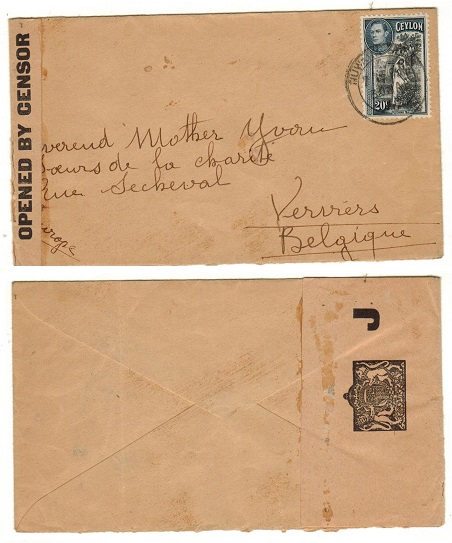 OPENED BY CENSOR
CEYLON
20c
verend Mother Yvonn
oeurs de la charité
Rue Secheval
Verviers
Belgique
urope
J